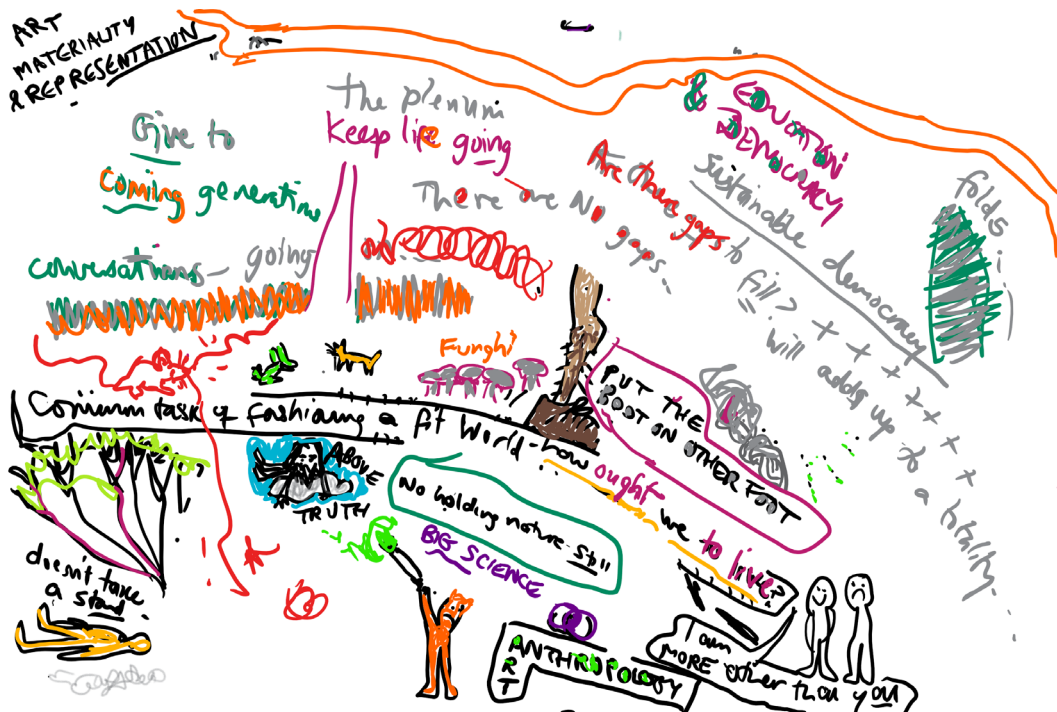 ART
MATERIALITY
& REPRESENTATION
Give to
Coming generations
conversations - going
The plenum
Keep life going
There are No gaps...
& EDUCATION
DEMOCRACY
Sustainable democracy
Are there gaps to fill?
+ + + + + + + +
will adds up to a totality
folds
Funghi
Common task of fashioning a fit World - how ought we to live?
PUT THE
BOOT ON OTHER FOOT
ABOVE
TRUTH
No holding nature still
BIG SCIENCE
doesn't take
a stand
ART
ANTHROPOLOGY
I am
MORE other than you